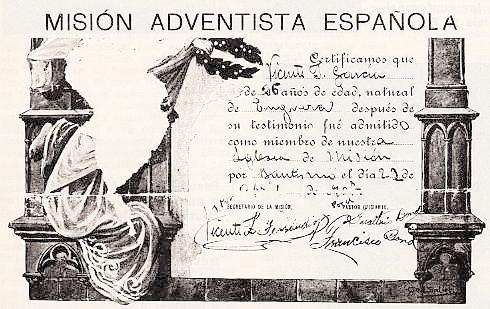 MISIÓN ADVENTISTA ESPAÑOLA
Certificamos que
Vicente L. García
de 26 años de edad, natural
de Enguera después de
su testimonio fué admitido
como miembro de nuestra
Iglesia de Misión
por bautismo el día 22 de
de
SECRETARIO DE LA MISIÓN.
Vicente L. Fernández
Francisco Bond